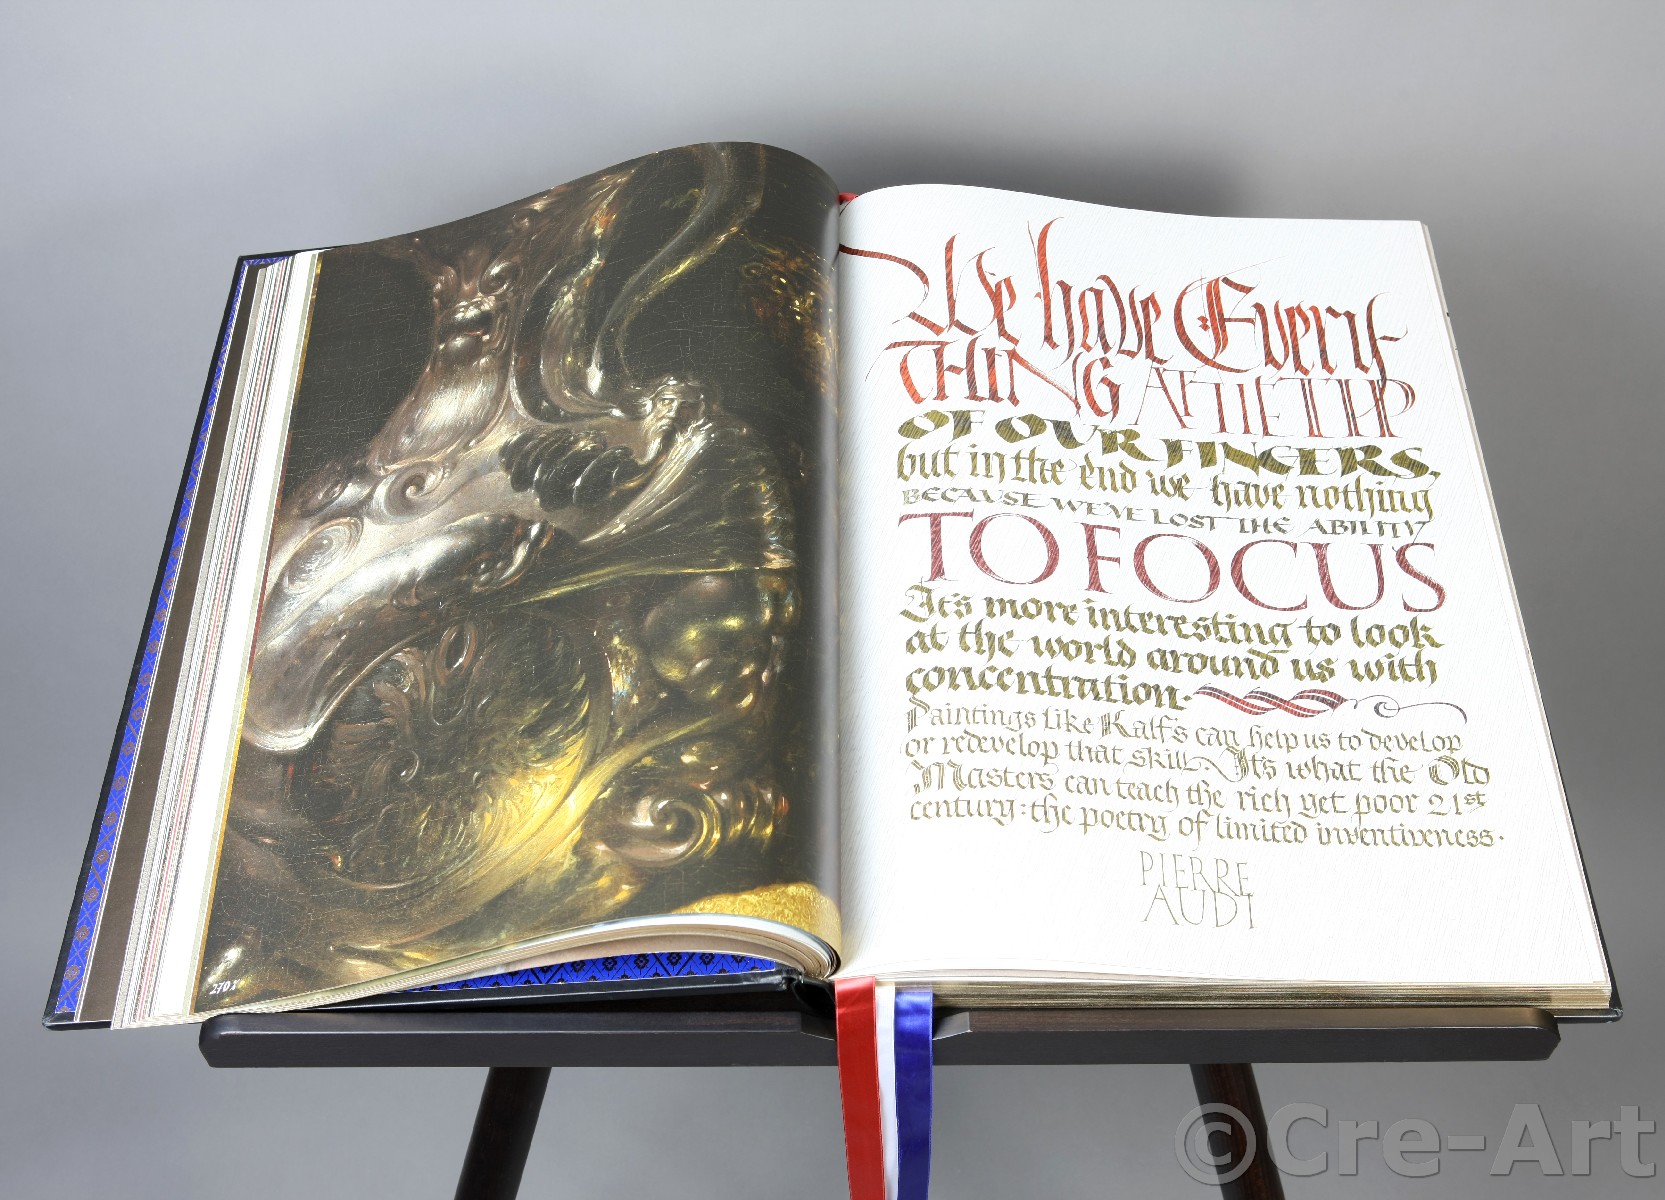 We have Every
THING AT THE TIP
OF OUR FINGERS,
but in the end we have nothing
BECAUSE WE'VE LOST THE ABILITY
TO FOCUS
It's more interesting to look
at the world around us with
concentration.
Paintings like Kalf's can help us to develop
or redevelop that skill. It's what the Old
Masters can teach the rich yet poor 21st
century: the poetry of limited inventiveness.
PIERRE
AUDI
2701
©Cre-Art